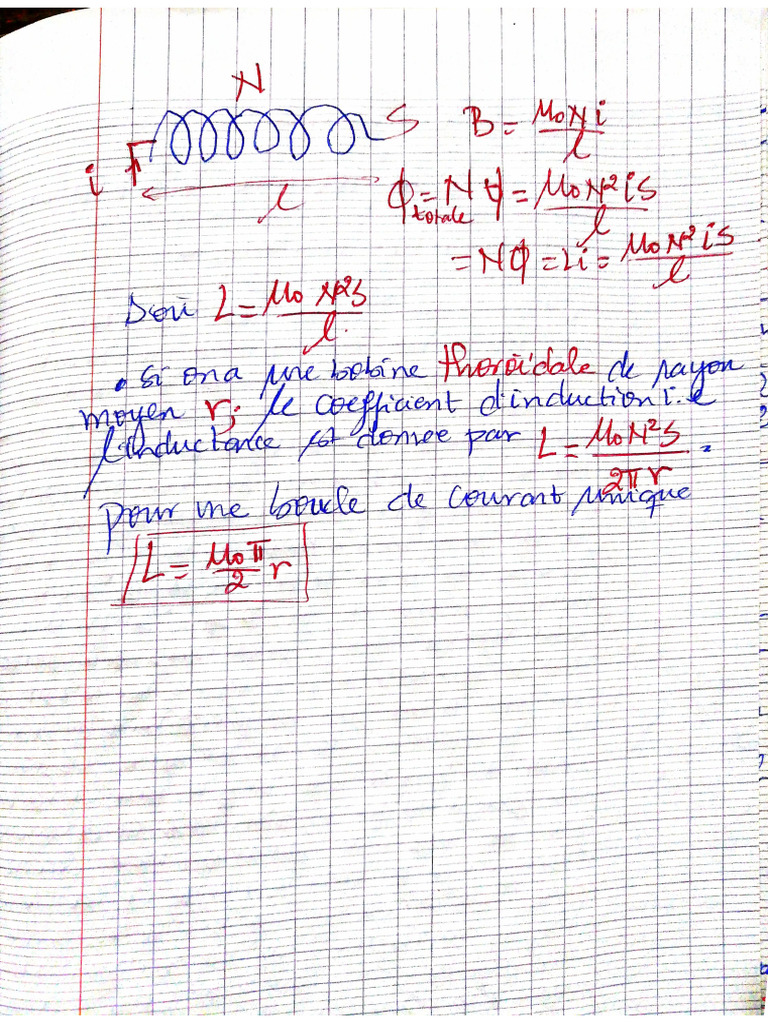 N
S
B = μ₀Ni/l
i
l
ϕtotale = Nϕ = μ₀N²iS/l
= Nϕ = Li = μ₀N²iS/l
D'où L = μ₀N²S/l.
. Si on a une bobine thoroïdale de rayon
moyen r; le coefficient d'induction i.e
l'inductance est donnée par L = μ₀N²S/2πr.
Pour une boucle de courant unique
L = μ₀π/2 r